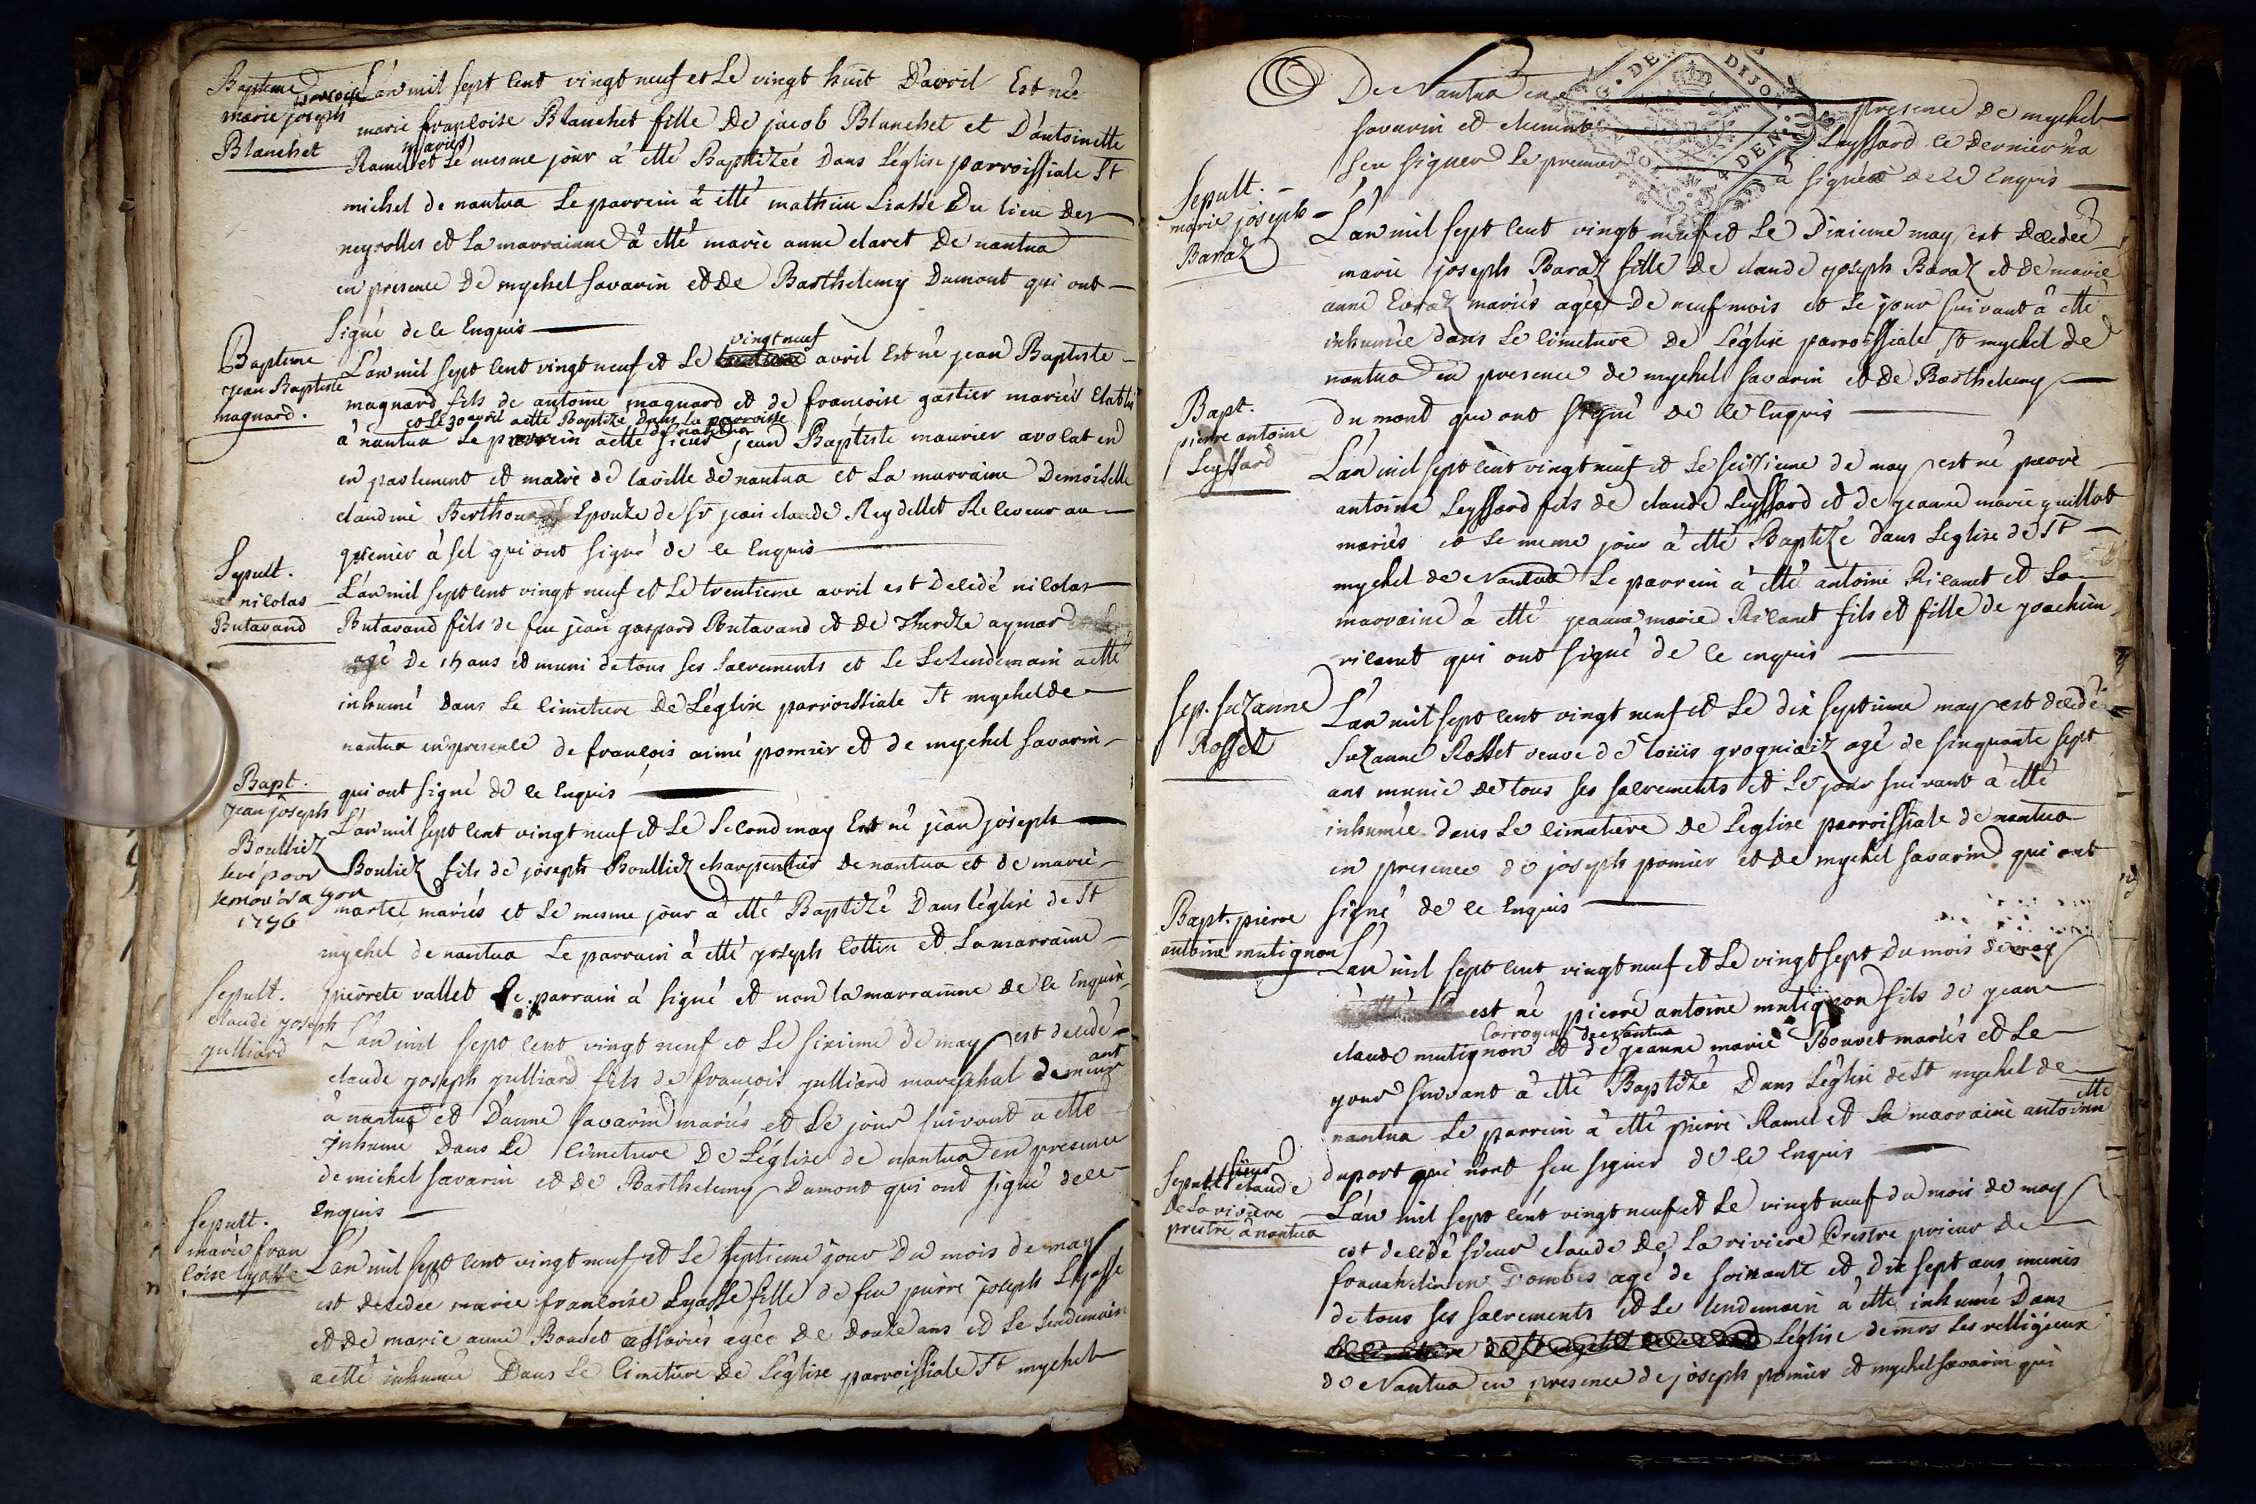 Bapteme
marie françoise joseph
Blanchet
L'an mil sept cent vingt neuf et Le vingt huit D'avril Est née
marie françoise Blanchet fille De jacob Blanchet et D'antoinette
Ramel mariés et Le mesme jour à etté Baptizée Dans L'église parroissiale St
michel de nantua Le parrein à etté mathieu Liasse Du lieu des
neyrolles et La marrainne à etté marie anne claret De nantua
en presence De mychel savarin et De Barthelemy Dumont qui ont
signé de ce Enquis
Bapteme
jean Baptiste
magnard.
L'an mil sept cent vingt neuf et Le vingt neuf avril Est né jean Baptiste
magnard fils de antoine magnard et de francoise gastier mariés Etablis
et le 30 avril a etté Baptizé Dans La parroisse
de nantua
à nantua Le parrein a etté sieur jean Baptiste maurier avocat en
en parlement et maire de la ville de nantua et La marraine Demoiselle
claudine Epouze de Sr jean claude Reydellet Receveur au
grenier à sel qui ont signé de ce Enquis
Sepult.
nicolas
Butavand
L'an mil sept cent vingt neuf et Le trentieme avril est Decedé nicolas
Butavand fils de feu jean gaspard Butavand et de Thereze aymar
agé De 15 ans et muni de tous ses sacrements et Le Lendemain a etté
inhumé Dans Le cimetiere De L'église parroissiale St mychel de
nantua en presence de françois aimé pomier et de mychel savarin
qui ont signé de ce Enquis
Bapt.
jean joseph
Boulliez
levé pour
le
1756
L'an mil sept cent vingt neuf et Le second may Est né jean joseph
Bouliez fils de joseph Boulliez charpentier de nantua et de marie
martel mariés et Le mesme jour à etté Baptizé Dans l'église de St
mychel de nantua Le parrain à etté joseph Cottin et La marraine
pierrete vallet Le parrain à signé et non la marrainne de ce Enquis
Sepult.
claude joseph
julliard
L'an mil sept cent vingt neuf et Le sixieme de may est decedé
claude joseph julliard fils de françois julliard mareschal demeurant
à nantua et D'anne savarin mariés et Le jour suivant a etté
Inhumé Dans Le cimetiere De L'église de nantua en presence
de michel savarin et de Barthelemy Dumont qui ont signé de ce
Enquis
Sepult.
marie fran
coise Lyasse
L'an mil sept cent vingt neuf et Le septieme jour Du mois de may
est decedée marie françoise Lyasse fille de feu pierre joseph Lyasse
et De marie anne Boudet mariés agée De Douze ans et Le Lendemain
a etté inhumée Dans Le cimetiere De L'église parroissiale St mychel
De Nantua en presence De mychel
savarin et clement Leyssard le dernier n'a
sceu signer Le premier à signé de ce Enquis
Sepult.
marie joseph
Baraz
L'an mil sept cent vingt neuf et Le Dixieme may est Decedée
marie joseph Baraz fille De claude joseph Baraz et de marie
anne Evraz mariés agée De neuf mois et Le jour suivant à etté
inhumée dans Le cimetiere De L'église parroissiale St mychel de
nantua en presence de mychel savarin et de Barthelemy
du mont qui ont signé de ce Enquis
Bapt.
pierre antoine
Leyssard
L'an mil sept cent vingt neuf et Le seizieme de may est né pierre
antoine Leyssard fils de claude Leyssard et de jeanne marie guillot
mariés et Le meme jour à etté Baptizé dans L'eglise de St
mychel de Nantua Le parrein à etté antoine Rilanet et La
marraine à etté jeanne marie Rilanet fils et fille de joachim
rilanet qui ont signé de ce enquis
Sep. Suzanne
Rosset
L'an mil sept cent vingt neuf et Le dix septieme may est decedé
Suzanne Rosset veuve de louis grogniaiz agé de sinquante sept
ans munie de tous ses sacrements et Le jour suivant à etté
inhumée dans Le cimetiere De L'eglise parroissiale de nantua
en presence de joseph pomier et de mychel savarin qui ont
signé de ce Enquis
Bapt. pierre
antoine mutignon
L'an mil sept cent vingt neuf et Le vingt sept Du mois de may
est né pierre antoine mutignon fils de jean
corroyeur de nantua
claude mutignon et de jeanne marie Bouvet mariés et Le
jour suivant à etté Baptizé Dans L'église de St mychel de
nantua Le parrein à etté pierre Ramel et La marraine antoinette
duport qui n'ont sceu signer de ce Enquis
Sepult sieur claude
De La riviere
prestre à nantua
L'an mil sept cent vingt neuf et Le vingt neuf du mois de may
est decedé sieur claude De La riviere Prestre prieur de
en Dombes agé de soixante et Dix sept ans munis
de tous ses sacrements et Le lendemain à etté inhumé Dans
L'église de mrs les relligieux
de Nantua en presence de joseph pomier et mychel savarin qui